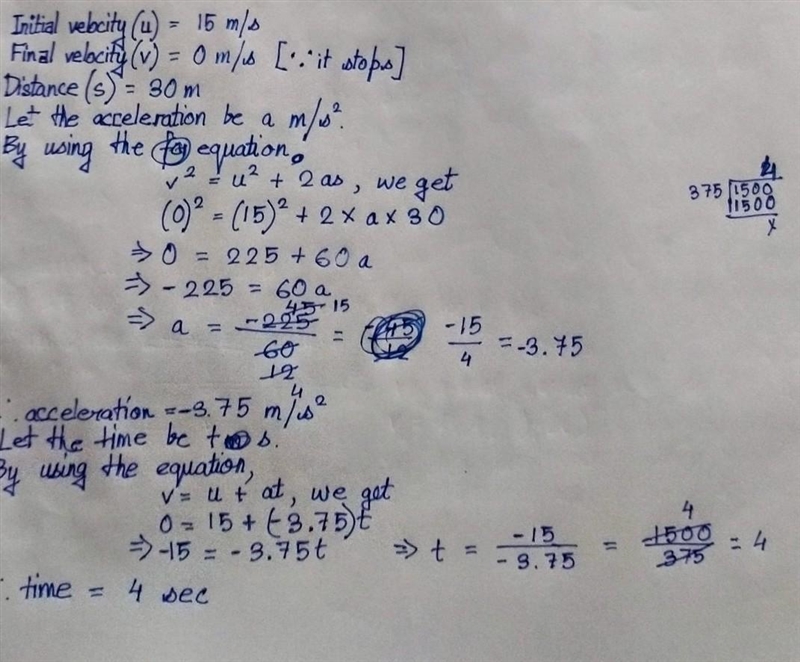 Initial velocity (u) = 15 m/s
Final velocity (v) = 0 m/s [∵ it stops]
Distance (s) = 30 m
Let the acceleration be a m/s².
By using the equation,
v² = u² + 2as, we get
(0)² = (15)² + 2 × a × 30
⇒ 0 = 225 + 60 a
⇒ -225 = 60 a
45 15
⇒ a = -225/60 = -15/4 = -3.75
12
4
∴ acceleration = -3.75 m/s²
Let the time be t s.
By using the equation,
v = u + at, we get
0 = 15 + (-3.75)t
⇒ -15 = -3.75t ⇒ t = -15/-3.75 = 1500/375 = 4
4
∴ time = 4 sec
4
375 1500
1500
x